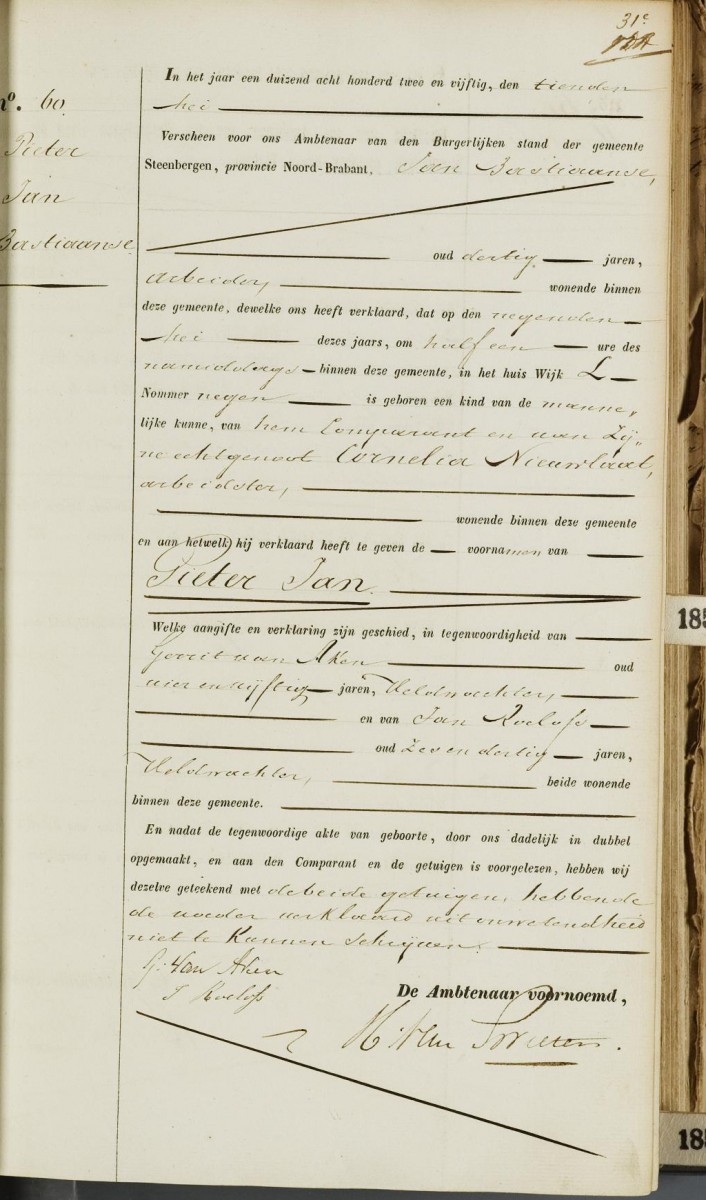 31e
No. 60.
Pieter
Jan
Bastiaanse
In het jaar een duizend acht honderd twee en vijftig, den tienden
Mei
Verscheen voor ons Ambtenaar van den Burgerlijken stand der gemeente
Steenbergen, provincie Noord-Brabant, Jan Bastiaanse,
oud dertig jaren,
arbeider, wonende binnen
deze gemeente, dewelke ons heeft verklaard, dat op den negenden
Mei dezes jaars, om half een ure des
namiddags binnen deze gemeente, in het huis Wijk L
Nommer negen is geboren een kind van de manne„
lijke kunne, van hem Comparant en van Zij„
ne echtgenoot Cornelia Nieuwlaat,
arbeidster,
wonende binnen deze gemeente
en aan hetwelk hij verklaard heeft te geven de voornamen van
Pieter Jan.
Welke aangifte en verklaring zijn geschied, in tegenwoordigheid van
Gerrit van Aken oud
vier en vijftig jaren, Veldwachter,
en van Jan Roelofs
oud Zes en dertig jaren,
Veldwachter, beide wonende
binnen deze gemeente.
En nadat de tegenwoordige akte van geboorte, door ons dadelijk in dubbel
opgemaakt, en aan den Comparant en de getuigen is voorgelezen, hebben wij
dezelve geteekend met de beide getuigen, hebbende
de vader verklaard uit onwetendheid
niet te Kunnen Schrijven.
G. Van Aken
J Roelofs
De Ambtenaar voornoemd,
H. Van
185
185